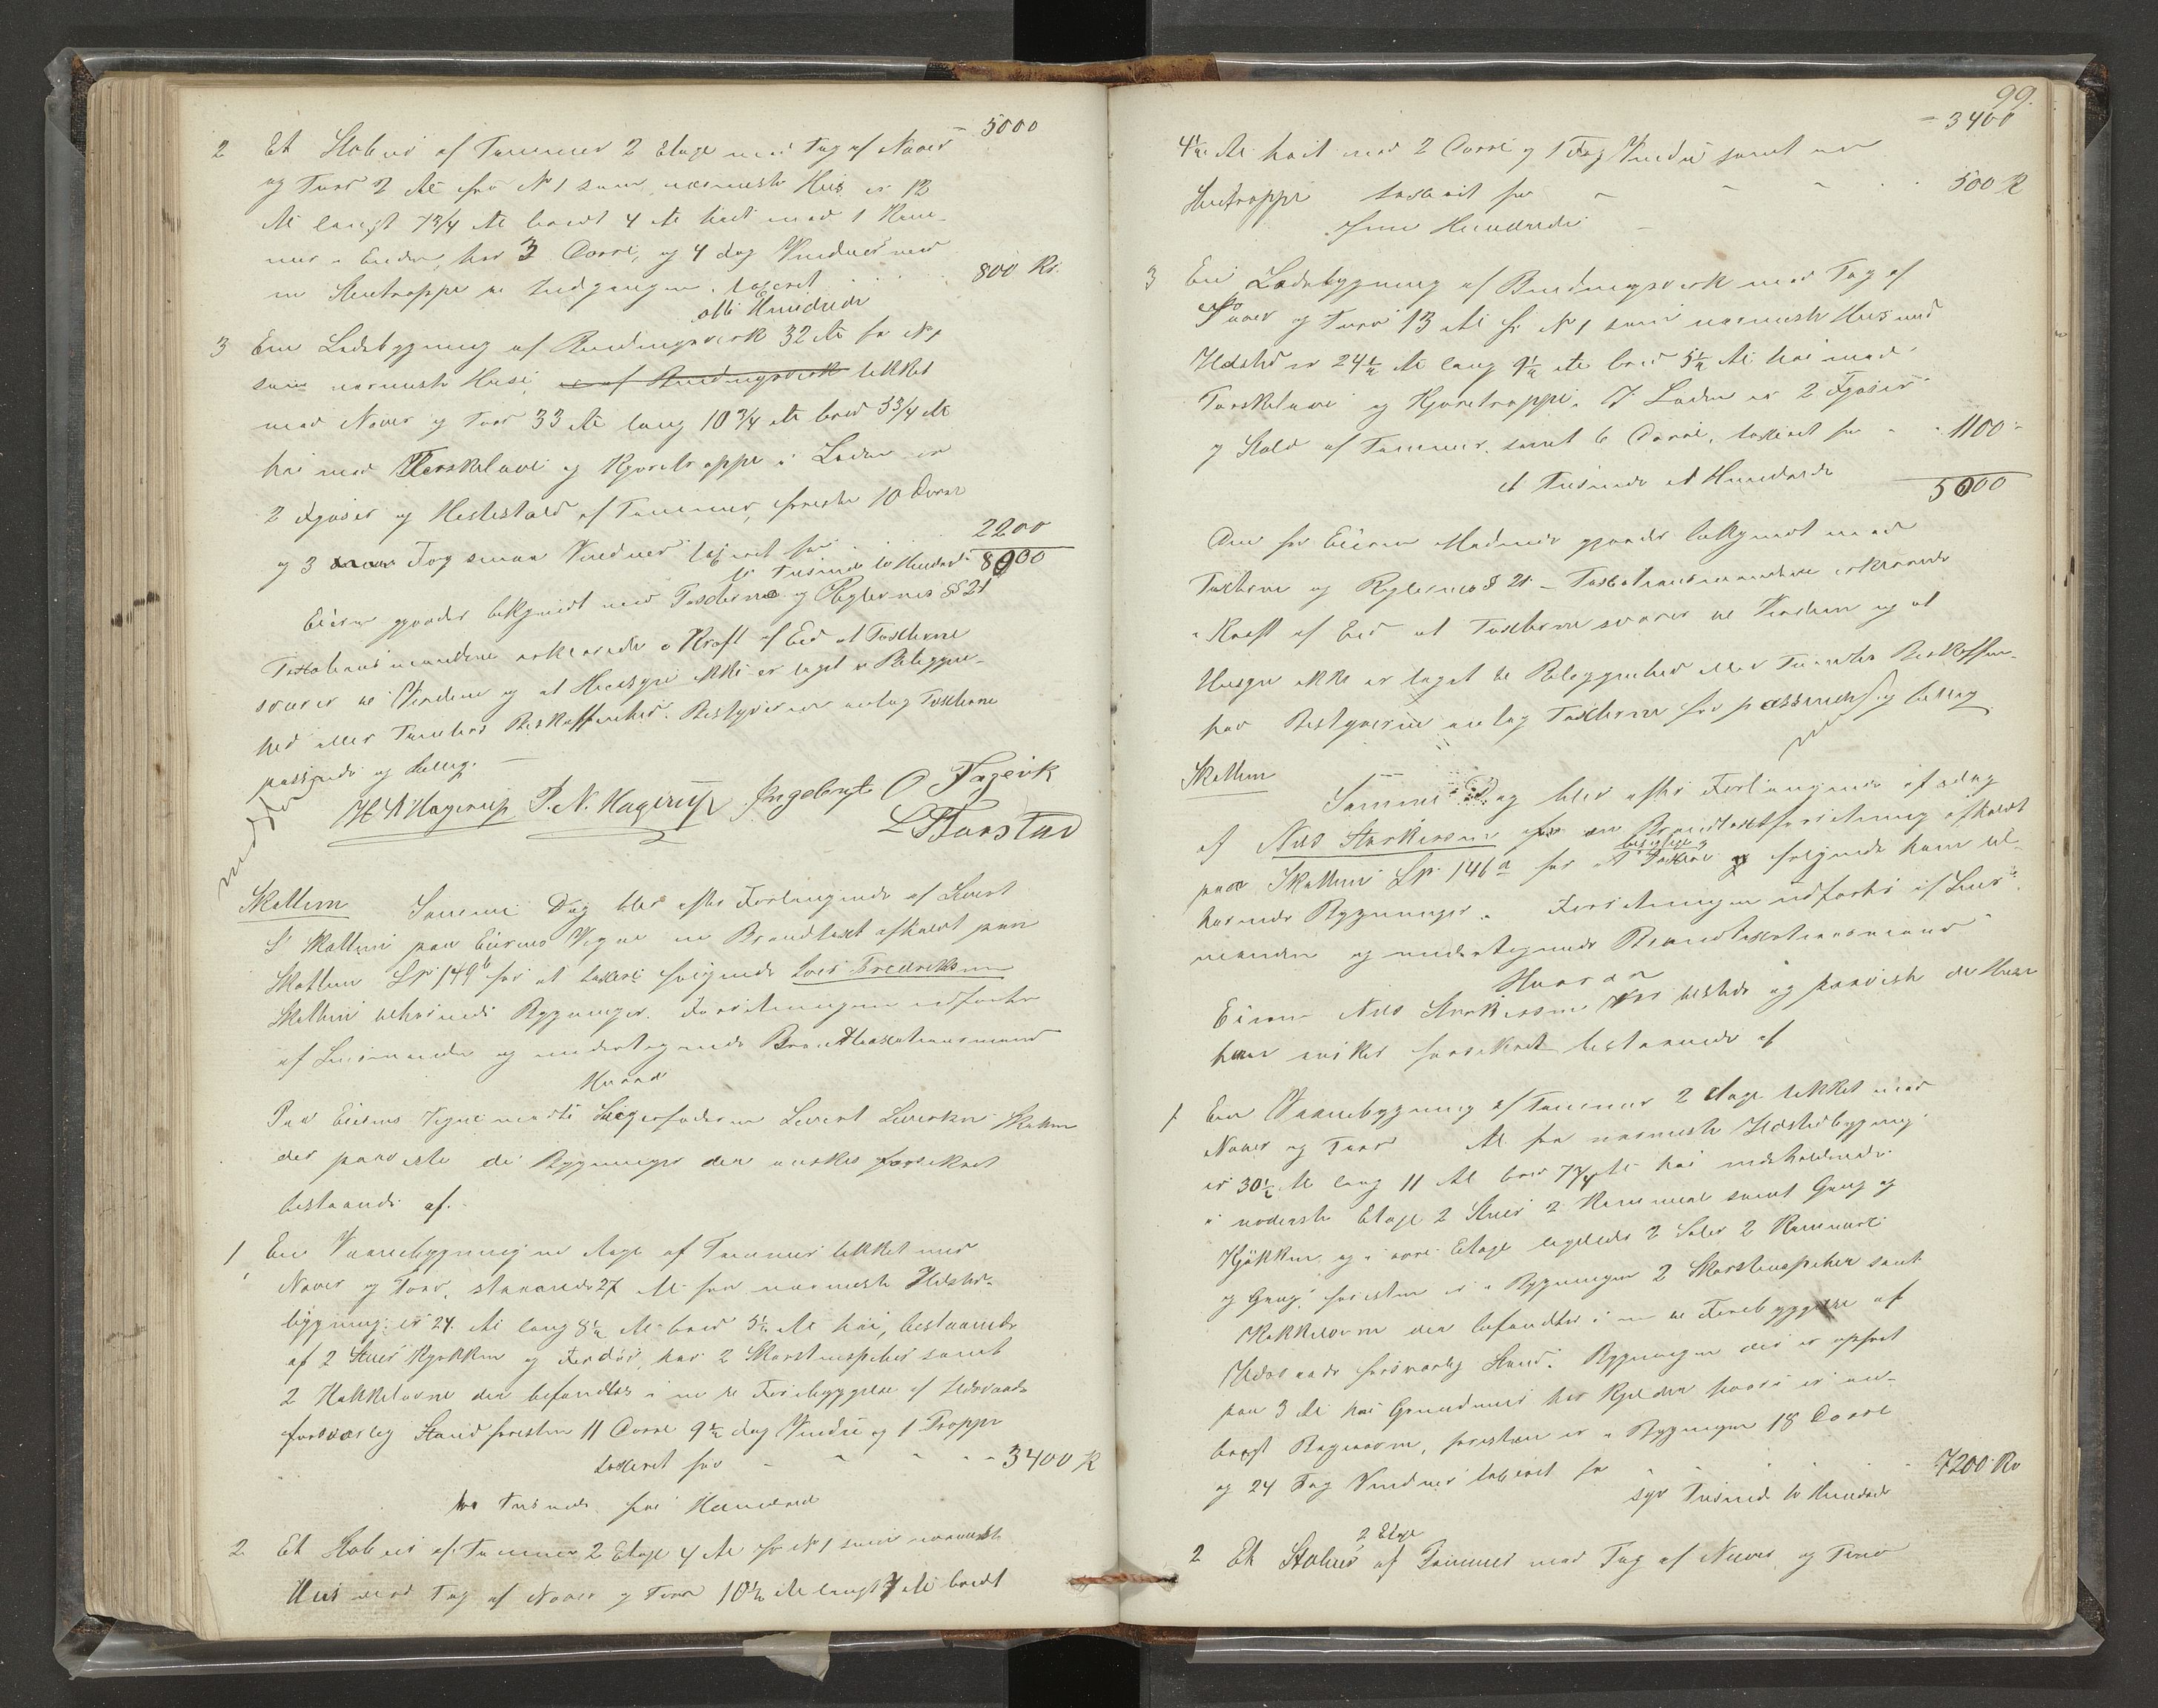 5000
2 Et Stabur af Tømmer 2 Etage med Tag af Næver
og Torv 2 Al fra No 1 som nærmeste Hus er 12
Al langt 7 3/4 Al bredt 4 Al høit med 1 Kam-
mer i Enden, har 3 Dørre, og 4 Fag Vinduer med
en Stentrappe til Indgangen, taxeret 800 Kr.
otte Hundrede
3 En Ladebygning af Bindingsverk 32 Al fra No 1
som nærmeste Huse, er af Bindingsverk tekket
med Næver og Torv 33 Al lang 10 3/4 Al bred 5 3/4 Al
høi med Tærskelaave og Kjøretrappe i Laden er
2 Fjøser og Hestestald af Tømmer, foresten 10 Dørre
og 3 smaa Fag smaa Vinduer taxeret for 2200
to Tusinde to Hundrede 8000
Eieren gjordes bekjendt med Taxterne og Reglernes § 21
Taxationsmændene erklærede i Kraft af Eed at Taxterne
svarer til Værdien og at Hensyn ikke er taget til Beliggen-
hed eller Tomtens Beskaffenhed. Bestyreren antog Taxterne
passende og billig.
H A Hagerup P. N. Hagerup Ingebrigt O Fagervik
L Barstad
Skatlem Samme Dag blev efter Forlangende af Sivert
S Skatlem paa Eierens Vegne en Brandtaxt afholdt paa
Skatlem Lp 149b for at taxere følgende Lars Fredriksen
Skatlem tilhørende Bygninger. Forretningen udførtes
af Lensmanden og undertegnede Brandtaxationsmænd
Hvorved
Paa Eierens Vegne mødte Svigerfaderen Sivert Sivertsen Skatlem
der paaviste de Bygninger der ønskes forsikret
bestaaende af.
1 En Vaanebygning en Etage af Tømmer tekket med
Næver og Torv, staaende 27 Al fra nærmeste Ildsteds-
bygning; er 24 Al lang 8 1/2 Al bred 5 1/2 Al høi, bestaaende
af 2 Stuer Kjøkken og Fordør, har 2 Skorstenspiber samt
2 Kakkelovne der befandtes i en til Forebyggelse af Ildsvaade
forsvarlig Stand foresten 11 Dørre 9 1/2 Fag Vindue og 1 Trappe
taxeret for 3400 K
tre Tusinde fire Hundrede
2 Et Stabur af Tømmer 2 Etage 4 Al fra No 1 som nærmeste
Hus med Tag af Næver og Torv 10 1/2 Al langt 7 Al bredt
99.
3400
4 1/2 Al høit med 2 Dørre og 1 Fag Vindue samt en
Stentrappe taxeret for 500 K
Fem Hundrede
3 En Ladebygning af Bindingsverk med Tag af
Næver og Torv 13 Al fr No 1 som nærmeste Hus med
Ildsted er 24 1/2 Al lang 9 1/2 Al bred 5 1/2 Al høi med
Tærskelaave og Kjøretrappe. I Laden er 2 Fjøser
og Stald af Tømmer, samt 6 Dørre, taxeret for 1100
et Tusinde et Hundrede
5000
Den for Eieren Mødende gjordes bekjendt med
Taxterne og Reglernes § 21 – Taxationsmændene erklærede
i Kraft af Eed at Taxterne svarer til Værdien og at
Hensyn ikke er taget til Beliggenhed eller Tomtens Beskaffen-
hed Bestyreren antog Taxterne for passende og billig
Skatlem
Samme Dag blev efter Forlangende af
af Nils Sivertsen en Brandtaxtforretning afholdt
paa Skatlem Lp. 146a for at besigtige og Taxere følgende ham til-
hørende Bygninger. Forretningen udførtes af Lens-
manden og undertegnede Brandtaxationsmænd
Hvorved
Eieren Nils Sivertsen var tilstede og paaviste de Huse
han ønsker forsikret bestaaende af
1 En Vaanebygning af Tømmer 2 Etage tekket med
Næver og Torv Al fra nærmeste Ildstedbygning
er 30 1/2 Al lang 11 Al bred 7 3/4 Al høi indeholdende
i nederste Etage 2 Stuer 2 Kammere samt Gang og
Kjøkken, og i øvre Etage ligeledes 2 Saler 2 Kammere
og Gang, foresten er i Bygningen 2 Skorstenspiber samt
Kakkelovne der befandtes i en til Forebyggelse af
Ildsvaade forsvarlig Stand. Bygningen der er opført
paa 3 Al høi Grundmur har Kjelder hvori er an-
bragt Bagerovn, foresten er i Bygningen 18 Dørre
og 24 Fag Vinduer taxeret for 7200 Kr
syv Tusinde to Hundrede
2 Et Stabur 2 Etage af Tømmer med Tag af Næver og Torv